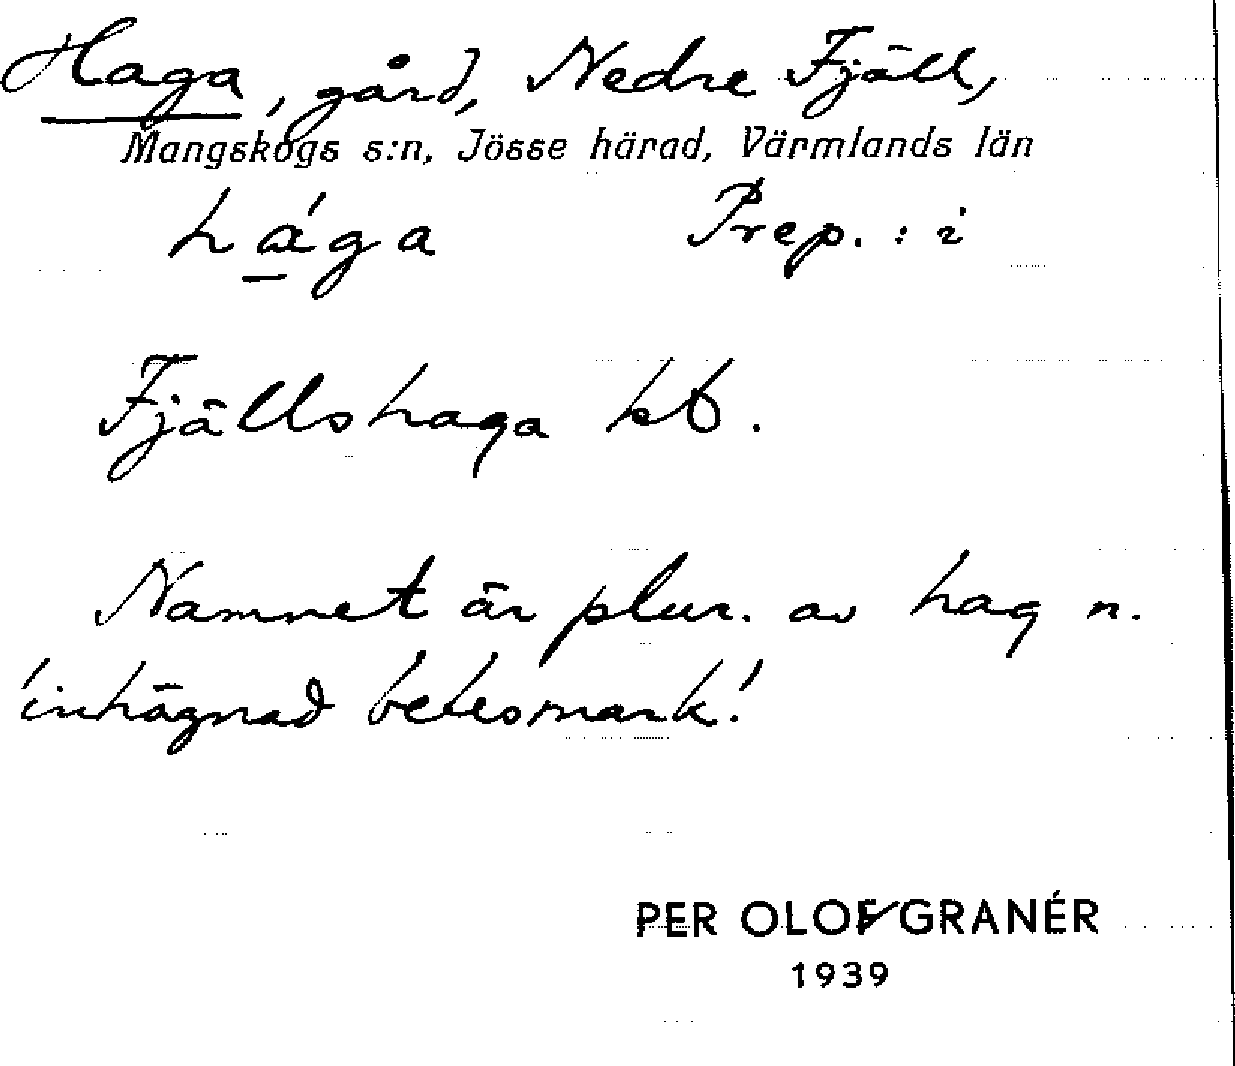 Haga, gård, Nedre Fjäll,
Mangskogs s:n, Jösse härad, Värmlands län
hága Prep. : i
Fjällshaga kb.
Namnet är plur. av hag n.
'inhägnad betesmark'.
PER OLOF GRANÉR
1939